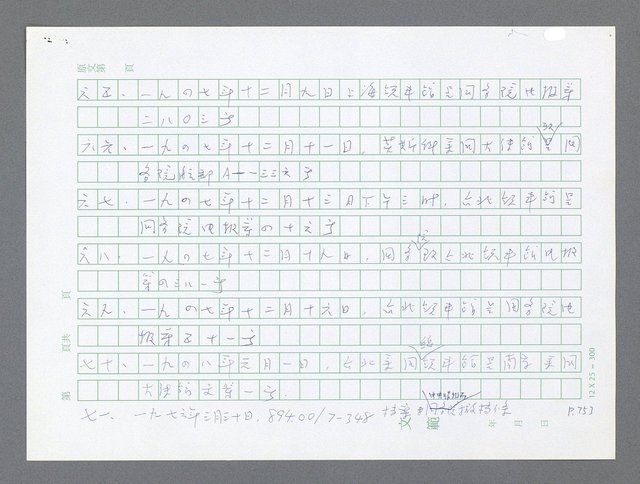 原文第　頁
六五、一九四七年十二月九日上海領事館呈國務院電報第
三八〇三号
六六、一九四七年十二月十一日，莫斯科美國大使館呈國
務院 A一一三三六号
六七、一九四七年十二月十三日下午三時，台北領事館呈
國務院電報第四十六号
六八、一九四七年十二月十九日，國務院致台北領事館電報
第四三八一号
六九、一九四七年十二月十六日，台北領事館呈國務院電
報第五十一号
七十、一九四八年元月一日，台北美國總領事館呈南京美國
大使館文第一号
七一、一九七三年三月三十日，894.00/7-348 檔案
第　頁共　頁
12 X 25 = 300
P.753
文　範
年　月　日